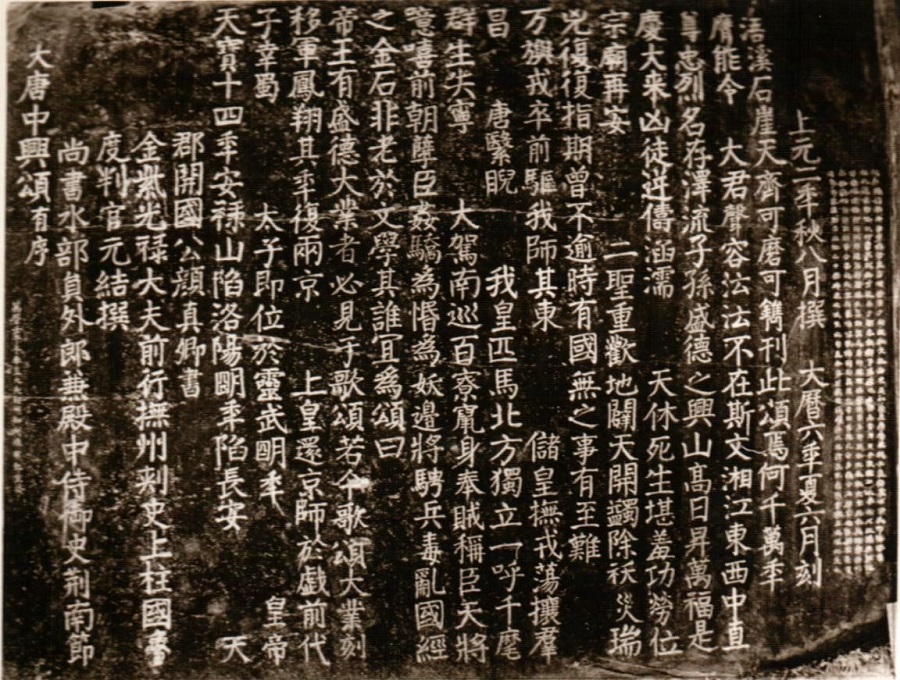 大唐中興頌有序
尚書水部員外郎兼殿中侍御史荊南節
度判官元結撰
金紫光祿大夫前行撫州刺史上柱國魯
郡開國公顏真卿書
天寶十四秊安祿山陷洛陽朙秊陷長安 天
子幸蜀 太子即位於靈武朙秊 皇帝
移軍鳳翔其秊復兩京 上皇還京師於戲前代
帝王有盛德大業者必見于歌頌若今歌頌大業刻
之金石非老於文學其誰宜為頌曰
噫嘻前朝孽臣姦驕為惛為妖邊將騁兵毒亂國經
群生失寧 大駕南巡百寮竄身奉賊稱臣天將
昌 唐繄睨 我皇匹馬北方獨立一呼千麾
万旟戎卒前驅我師其東 儲皇撫戎蕩攘羣
兇復復指期曾不逾時有國無之事有至難
宗廟再安 二聖重歡地闢天開蠲除祅災瑞
慶大来凶徒逆儔涵濡 天休死生堪羞功勞位
尊忠烈名存澤流子孫盛德之興山高日昇萬福是
膺能令 大君聲容沄沄不在斯文湘江東西中直
浯溪石崖天齊可磨可鐫刊此頌焉何千萬秊
上元二秊秋八月撰 大曆六秊夏六月刻